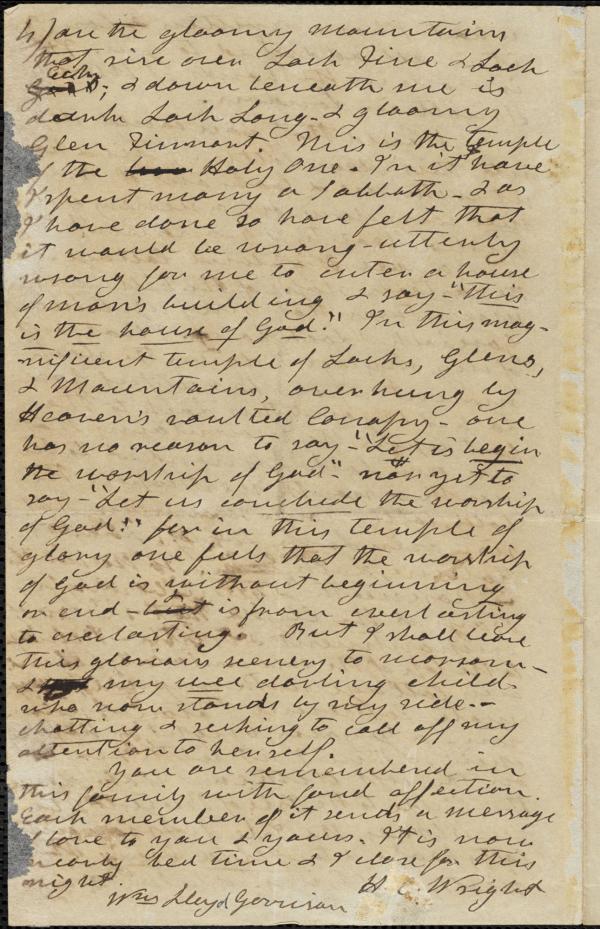 4) are the gloomy mountains
that rise over Loch Fine & Loch
Eck; & down beneath me is
dark Loch Long - & gloomy
Glen Finnart. This is the temple
of the Holy One. In it have
I spent many a Sabbath - & as
I have done so have felt that
it would be wrong - utterly
wrong for me to enter a house
of man's building & say - "this
is the house of God." In this mag-
nificent temple of Lochs, Glens,
& Mountains, overhung by
Heaven's vaulted Canopy - one
has no reason to say - "Let us begin
the worship of God" - nor yet to
say - "Let us conclude the worship
of God!" for in this temple of
glory one feels that the worship
of God is without beginning
or end - is from everlasting
to everlasting. But I shall leave
this glorious scenery to morrow -
& my wee darling child
who now stands by my side -
chatting & seeking to call off my
attention to herself.
You are remembered in
this family with fond affection.
Each member of it sends a message
of love to you & yours. It is now
nearly bed time & I close for this
night
H. C. Wright
Wm Lloyd Garrison